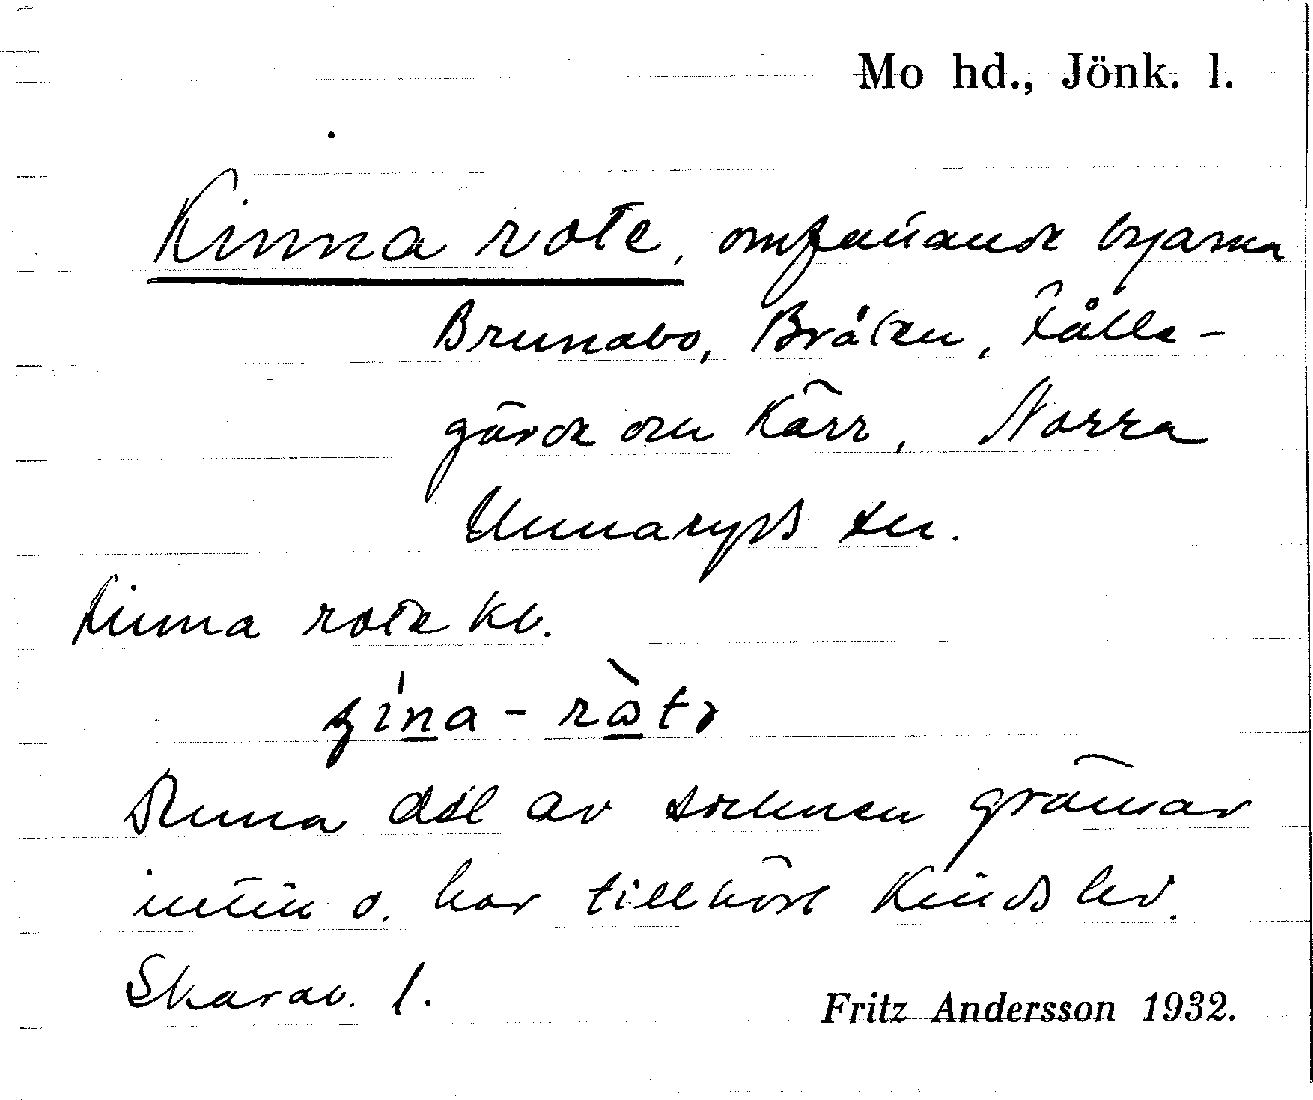 Mo hd., Jönk. l.
Kinna rote, omfattande byarna
Brunabo, Bråten, Fålle-
gärde och Kärr, Norra
Unnaryds sn.
Kinna rote kb.
Denna del av socknen gränsar
intill o. har tillhört Kinds hd.
Skarab. l.
Fritz Andersson 1932.